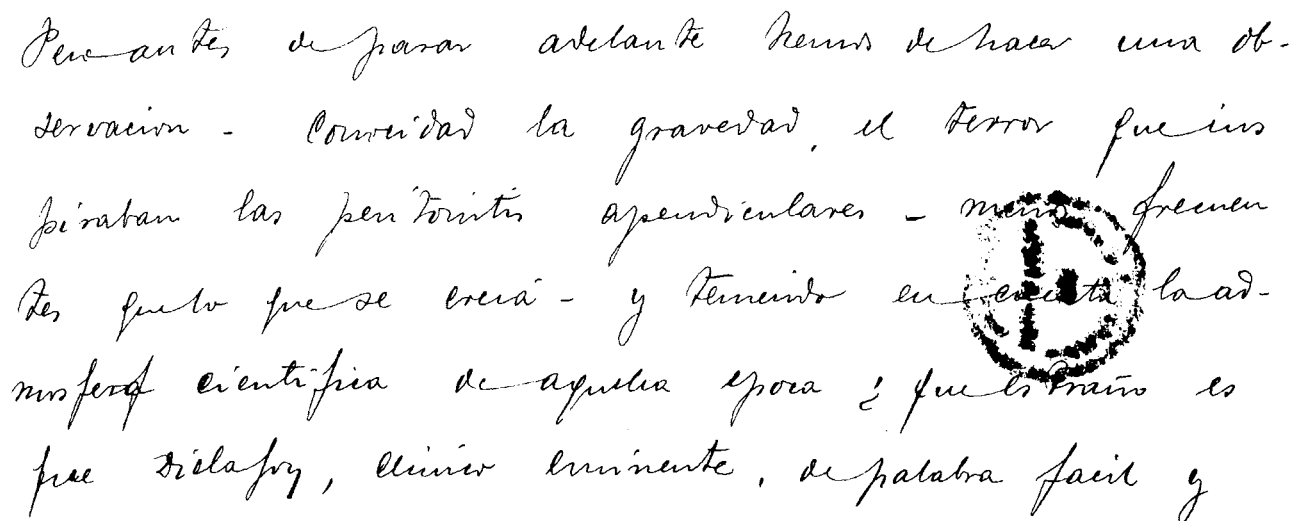 Pero antes de pasar adelante hemos de hacer una ob-
servacion - Conocidad la gravedad, el terror que ins
piraban las peritonitis apendiculares - menos frecuen
tes que lo que se creiá - y teniendo en cuenta la ad-
mosfera cientifica de aquella epoca ¿ que estraño es
que Dielafoy, clinico eminente, de palabra facil y